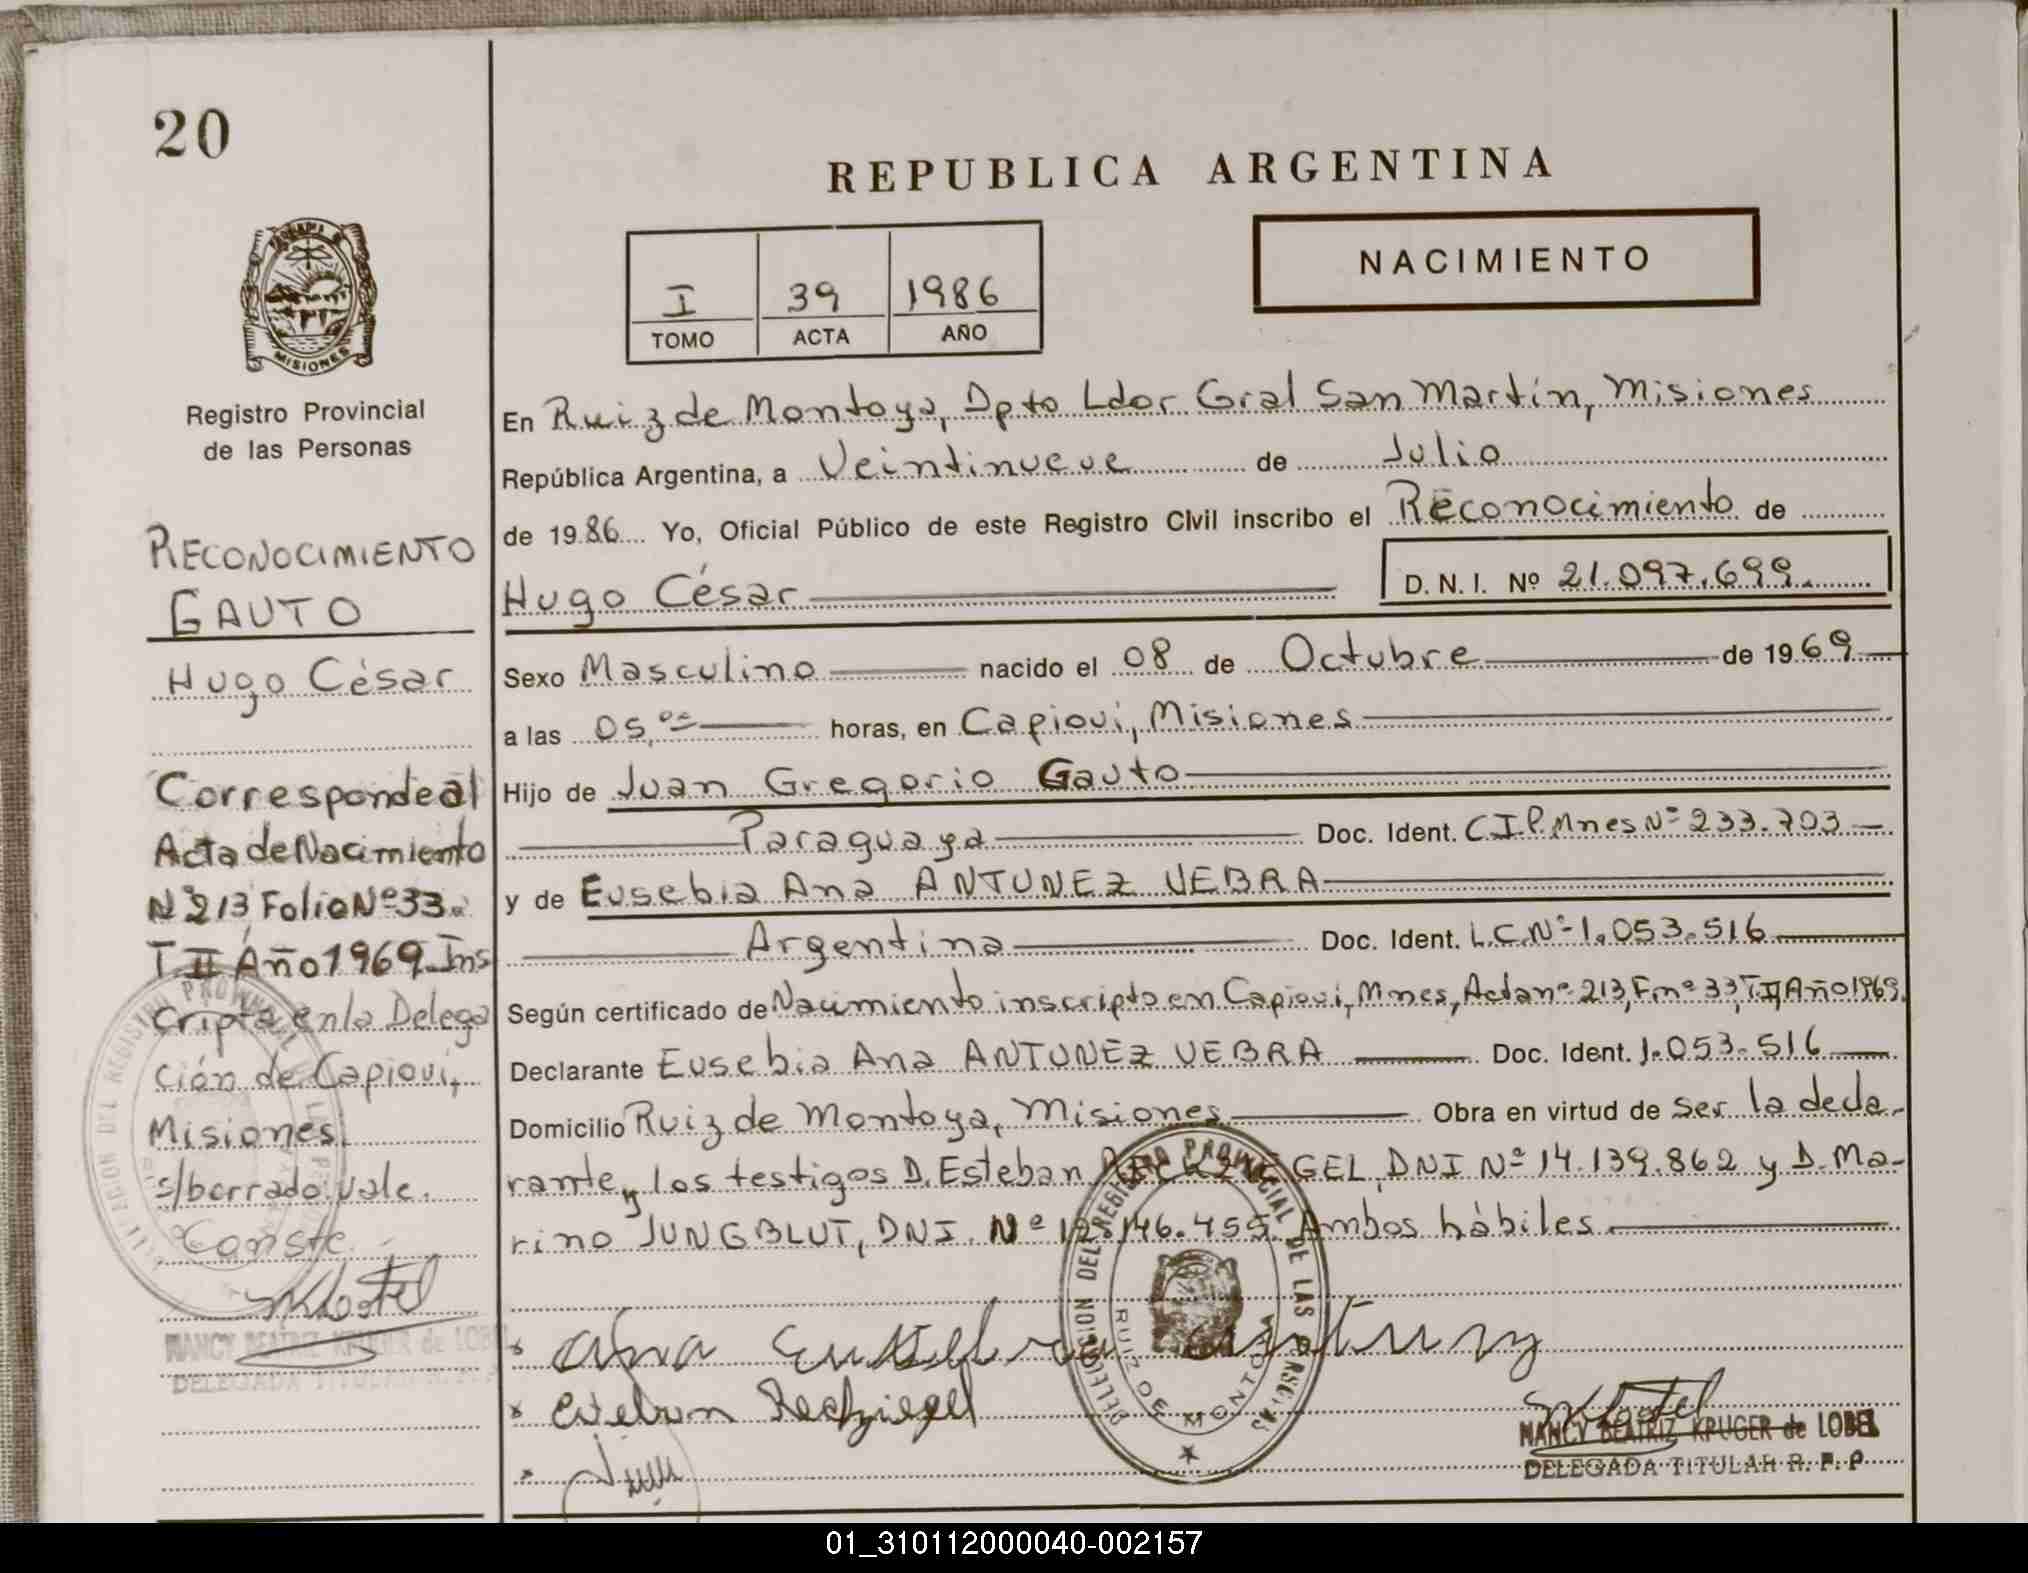 20
REPUBLICA ARGENTINA
NACIMIENTO
I 39 1986
TOMO ACTA AÑO
MISIONES
Registro Provincial
de las Personas
RECONOCIMIENTO
GAUTO
Hugo César
Corresponde al
Acta de Nacimiento
Nº 213 Folio Nº 33.
T II Año 1969. Ins
cripta en la Delega
ción de Capioví,
Misiones.
s/borrado: vale.
Conste.
NANCY BEATRIZ KRUGER de LOBEL
DELEGADA TITULAR R. P. P
En Ruiz de Montoya, Dpto Ldor Gral San Martín, Misiones
República Argentina, a Veintinueve de Julio
de 1986 Yo, Oficial Público de este Registro Civil inscribo el Reconocimiento de
Hugo César D. N. I. Nº 21.097.699.
Sexo Masculino nacido el 08 de Octubre de 1969
a las 05,00 horas, en Capioví, Misiones
Hijo de Juan Gregorio Gauto
Paraguaya Doc. Ident. C.I.P. Mnes Nº 233.703
y de Eusebia Ana ANTUNEZ VEBRA
Argentina Doc. Ident. L.C. Nº 1.053.516
Según certificado de Nacimiento inscripto en Capioví, Mnes, Acta nº 213, Fº nº 33, T II, Año 1969.
Declarante Eusebia Ana ANTUNEZ VEBRA Doc. Ident. 1.053.516
Domicilio Ruiz de Montoya, Misiones Obra en virtud de ser la decla-
rante, y los testigos D. Esteban RECKZIEGEL, DNI Nº 14.139.862 y D. Ma-
rino JUNGBLUT, DNI. Nº 12.146.455. Ambos hábiles.
DELEGACION DEL REGISTRO PROVINCIAL DE LAS PERSONAS
RUIZ DE MONTOYA
Ana Eusebia Antunez
Esteban Reckziegel
NANCY BEATRIZ KRUGER de LOBEL
DELEGADA TITULAR R. P. P
01_310112000040-002157